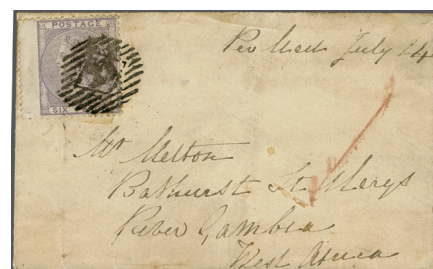 POSTAGE
SIX
Per Mail July 24
Mr Melton
Bathurst St Marys
River Gambia
West Africa